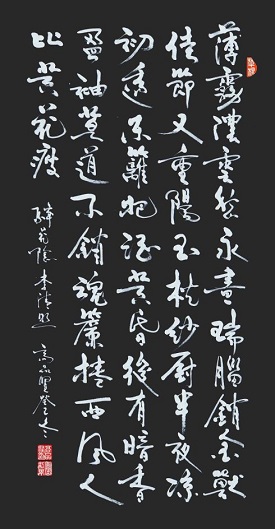 薄霧濃雲愁永晝瑞腦銷金獸
佳節又重陽玉枕紗厨半夜凉
初透东籬把酒黄昏後有暗香
盈袖莫道不銷魂簾捲西風人
比黄花瘦
醉花陰李清照